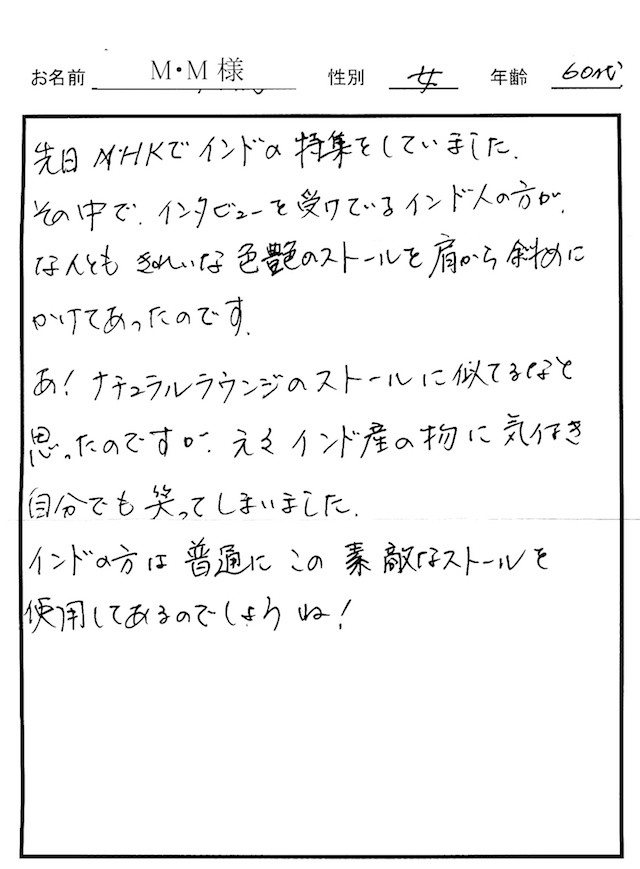 お名前 M・M 様 性別 女 年齢 60代
先日 NHKで インドの 特集をしていました.
その中で. インタビューを受けているインド人の方が.
なんとも きれいな 色艶のストールを 肩から 斜めに
かけてあったのです.
あ! ナチュラルラウンジのストールに似てるなと
思ったのですが. 元々 インド産の物に 気付き
自分でも 笑ってしまいました.
インドの方は 普通に この 素敵なストールを
使用してあるのでしょうね!